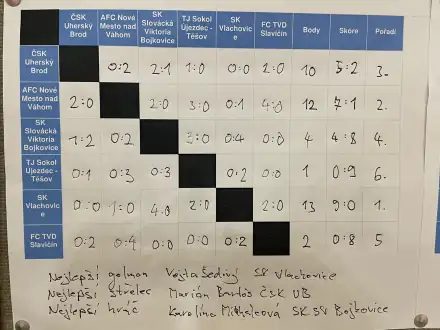 ČSK Uherský Brod AFC Nové Mesto nad Váhom SK Slovácká Viktoria Bojkovice TJ Sokol Újezdec - Těšov SK Vlachovice FC TVD Slavičín Body Skóre Pořadí
ČSK Uherský Brod 0:2 2:1 1:0 0:0 2:0 10 5:2 3.
AFC Nové Mesto nad Váhom 2:0 2:0 3:0 0:1 4:0 12 7:1 2.
SK Slovácká Viktoria Bojkovice 1:2 0:2 3:0 0:4 0:0 4 4:8 4.
TJ Sokol Újezdec - Těšov 0:1 0:3 0:3 0:2 0:0 1 0:9 6.
SK Vlachovice 0:0 1:0 4:0 2:0 2:0 13 9:0 1.
FC TVD Slavičín 0:2 0:4 0:0 0:0 0:2 2 0:8 5
Nejlepší golman Vojta Šedivý SK Vlachovice
Nejlepší střelec Marián Bartoš ČSK UB
Nejlepší hráč Karolína SK SV Bojkovice